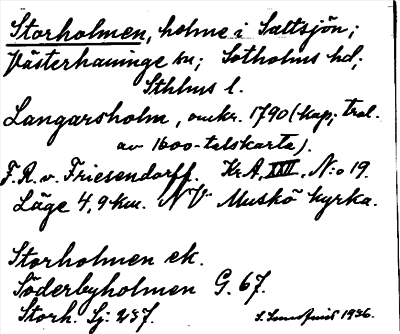 Storholmen, holme i Saltsjön;
Västerhaninge sn; Sotholms hd;
Sthlms l.
Langarsholm, omkr. 1790 (kop; tral.
av 1600-talskarta).
F.R. v. Friesendorff. Kr.A. XXII. N:o 19.
Läge 4,9 km. NV Muskö kyrka.
Storholmen ek.
Söderbyholmen G. 67.
Storh. Sj: 237.
1936.